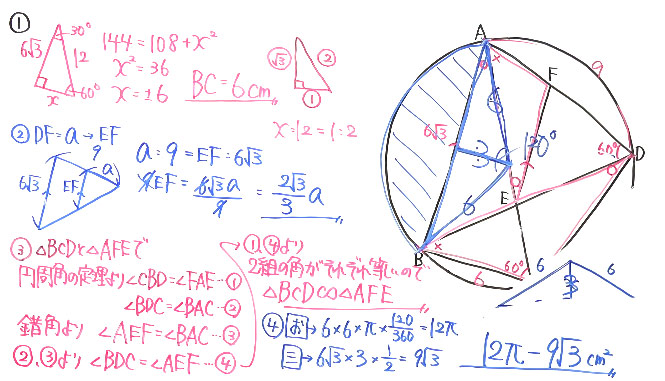 ①
30°
6√3
12
x
60°
144=108+x²
x²=36
x=±6
BC=6cm
√3
②
①
x:12=1:2
② DF=a→EF
9
a
6√3
EF
a:9=EF:6√3
9EF=6√3a/9=2√3/3a
③ △BCDと△AFEで
円周角の定理より∠CBD=∠FAE…①
∠BDC=∠BAC…②
錯角より ∠AEF=∠BAC…③
②,③より ∠BDC=∠AEF…④
①,④より
2組の角がそれぞれ等しいので
△BCD∽△AFE
④ お→6×6×π×120/360=12π
三→6√3×3×1/2=9√3
12π-9√3 cm²
A
F
9
6
6√3
3
120°
60°
D
E
6
B
6
60°
6
6